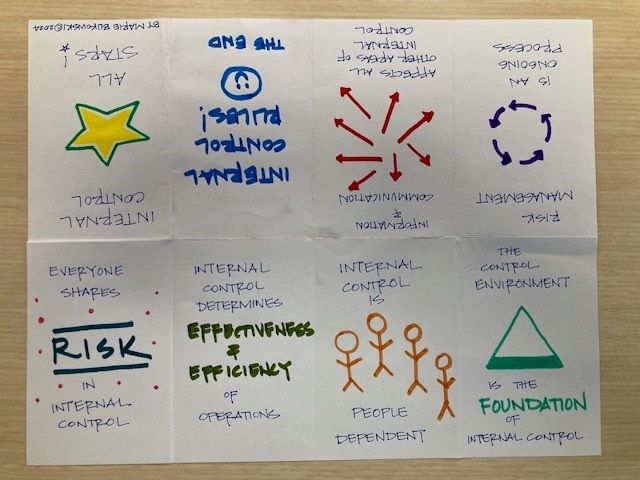 INTERNAL
CONTROL
ALL
STARS! *
BY MARIE BUKOWSKI ©2024
EVERYONE
SHARES
RISK
IN
INTERNAL
CONTROL
INTERNAL
CONTROL
DETERMINES
EFFECTIVENESS
&
EFFICIENCY
OF
OPERATIONS
INTERNAL
CONTROL
IS
PEOPLE
DEPENDENT
THE
CONTROL
ENVIRONMENT
IS THE
FOUNDATION
OF
INTERNAL CONTROL
RISK
MANAGEMENT
IS AN
ONGOING
PROCESS
INFORMATION
&
COMMUNICATION
AFFECTS ALL
OTHER AREAS OF
INTERNAL
CONTROL
INTERNAL
CONTROL
RULES!
THE END